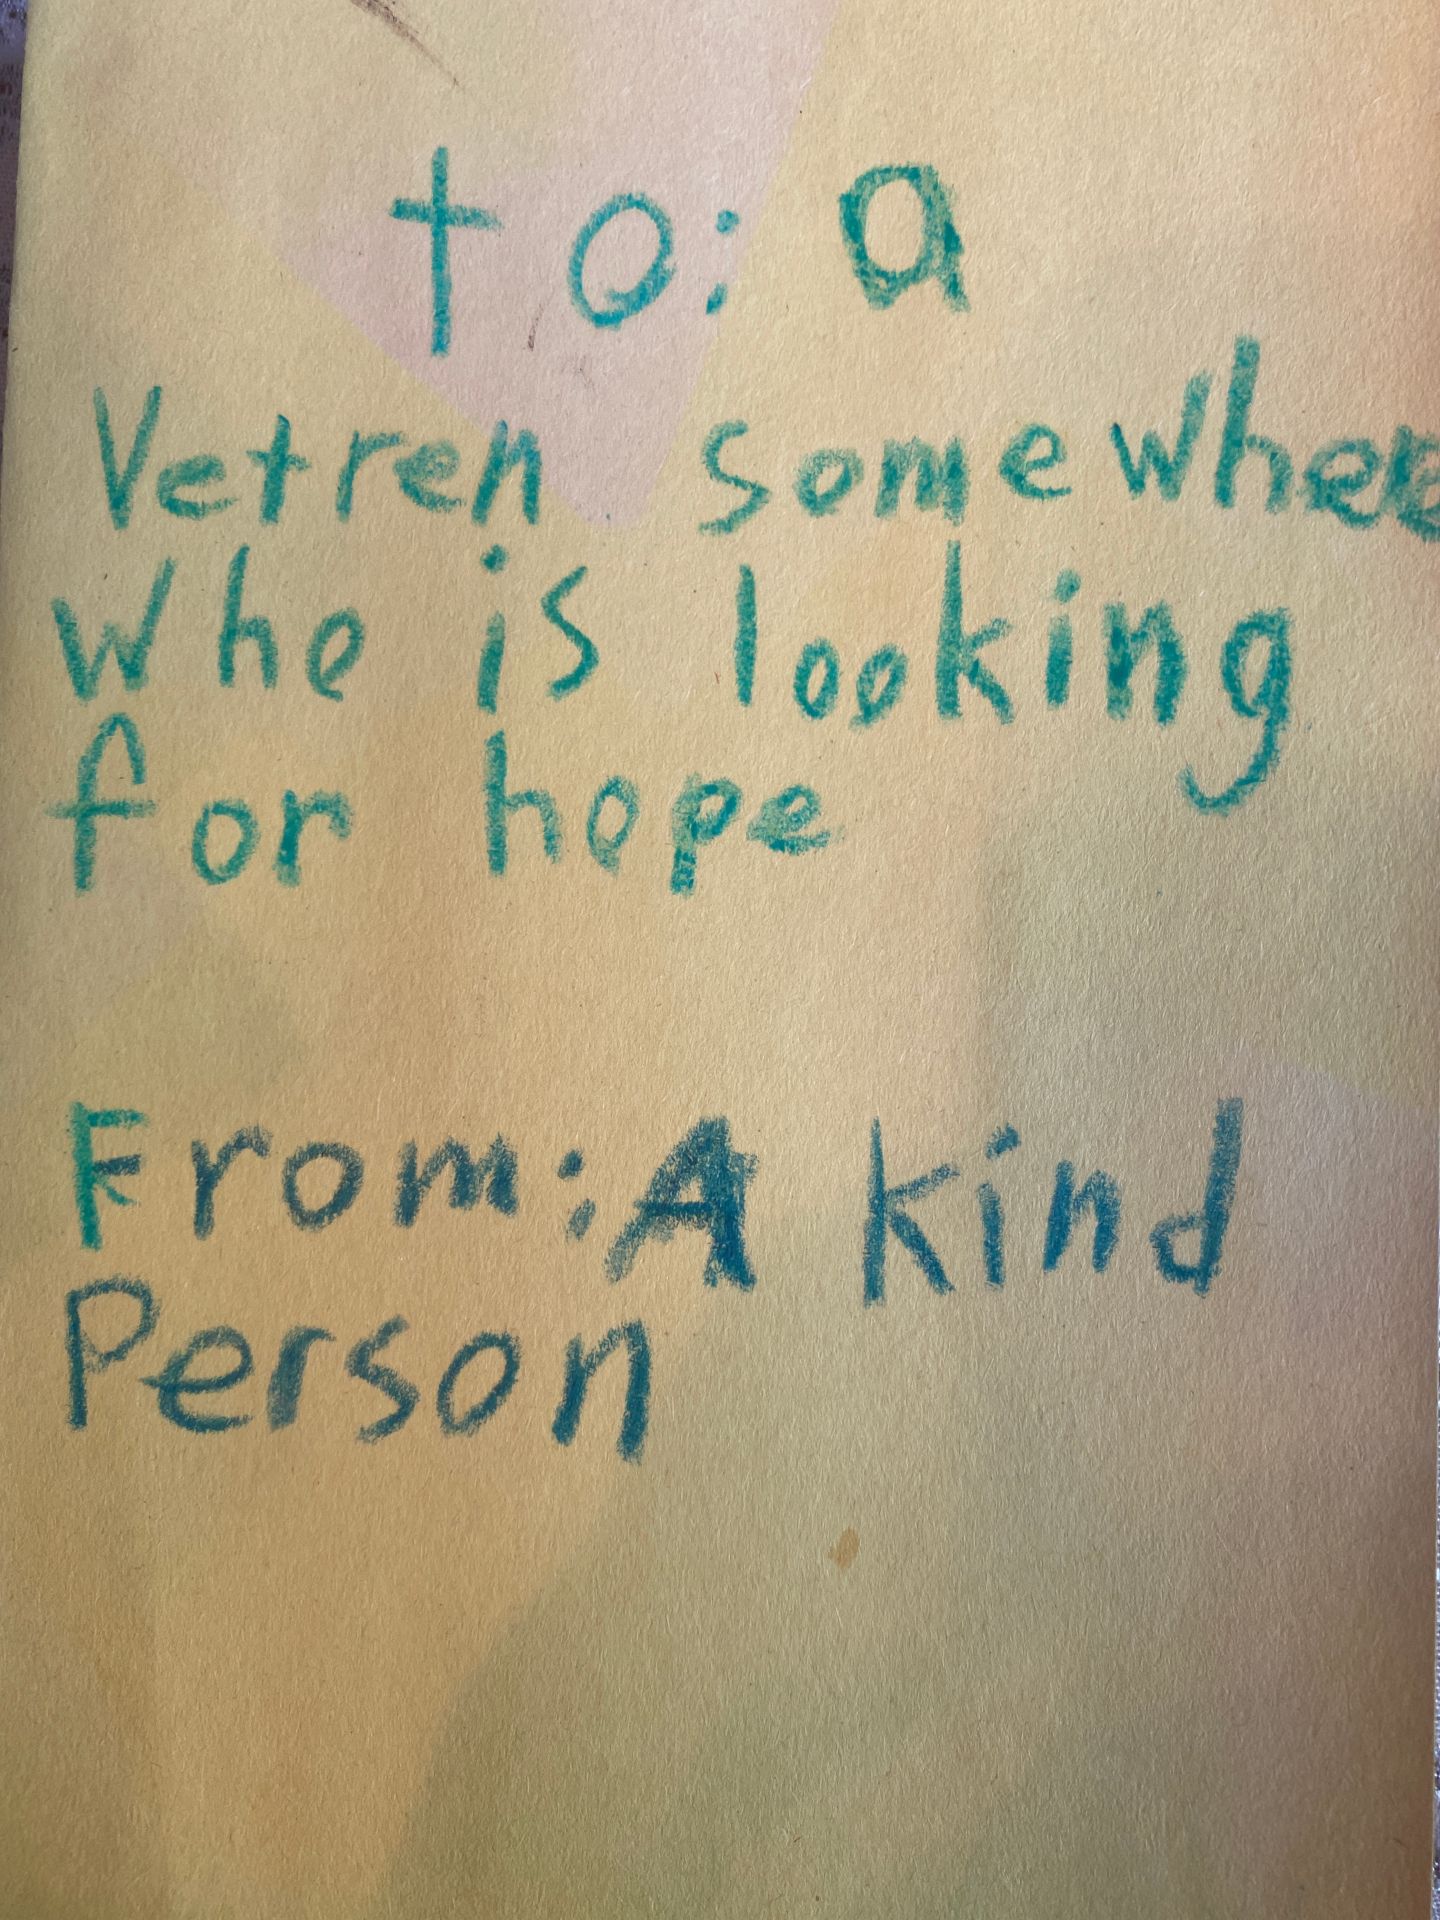 to: a
Vetren somewhere
who is looking
for hope
From: A kind
Person